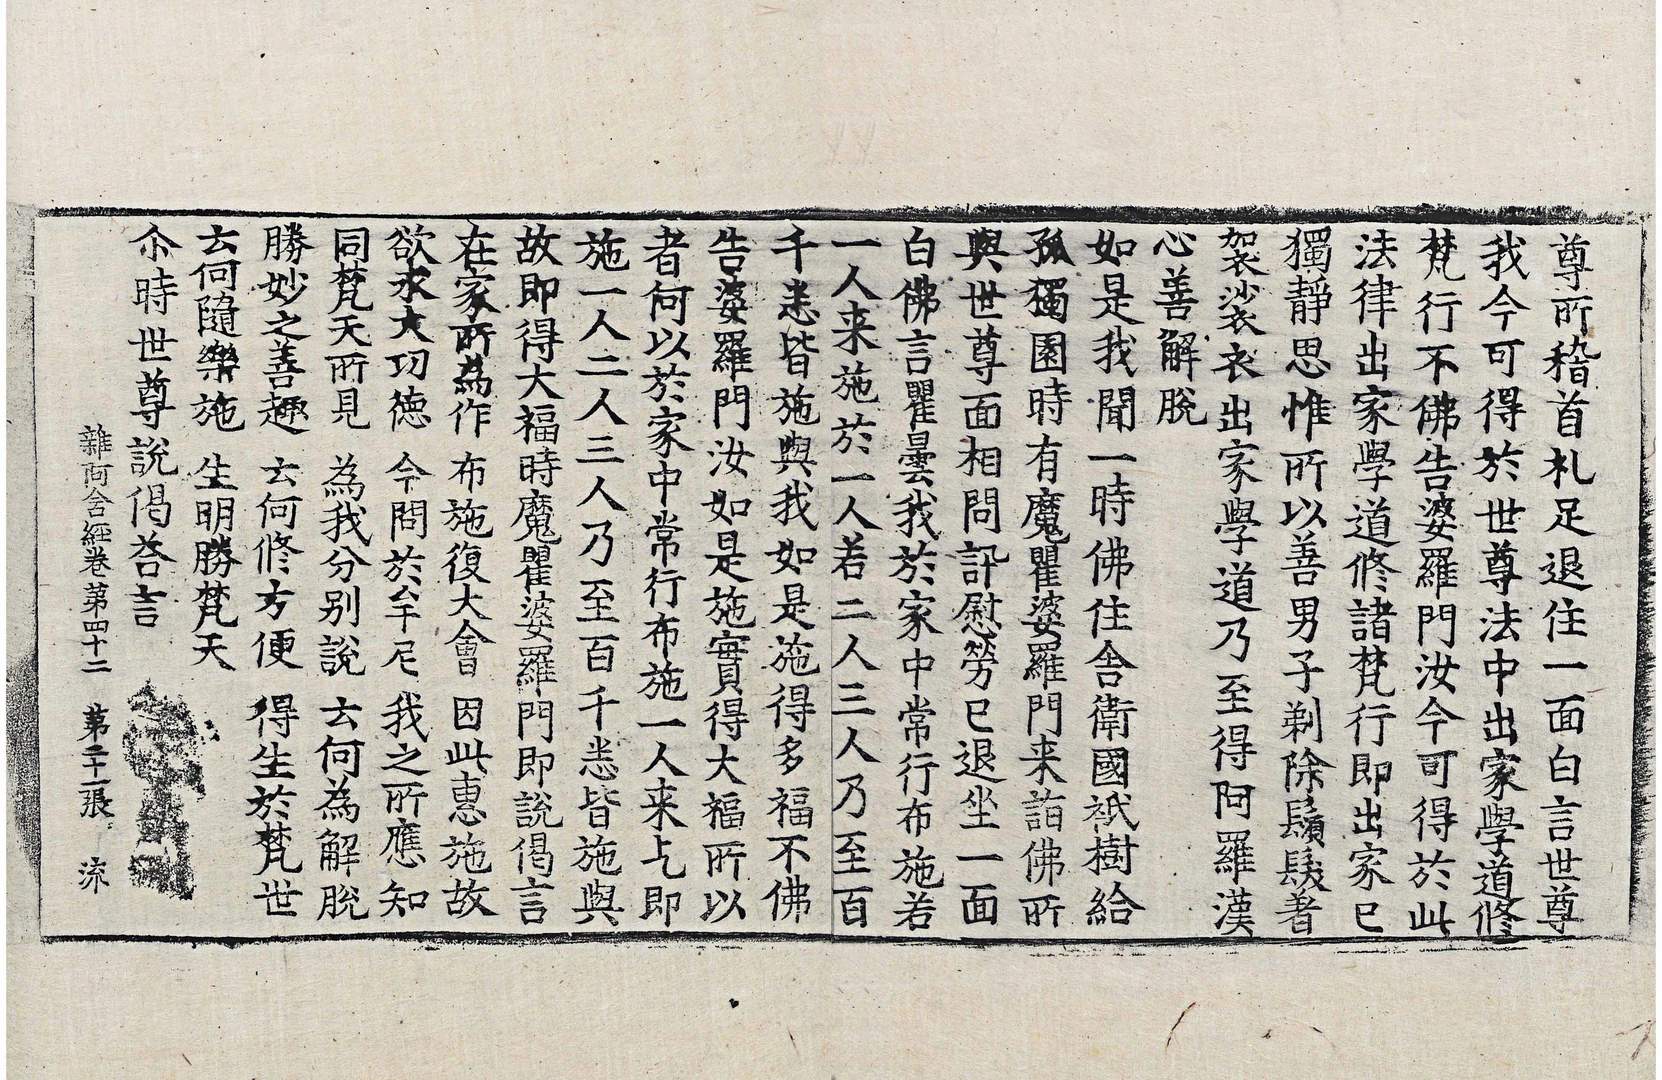 尊所稽首礼足退住一面白言世尊
我今可得於世尊法中出家學道修
梵行不佛告婆羅門汝今可得於此
法律出家學道修諸梵行即出家已
獨靜思惟所以善男子剃除鬚髮著
袈裟衣出家學道乃至得阿羅漢
心善解脫
如是我聞一時佛住舍衛國祇樹給
孤獨園時有魔瞿婆羅門来詣佛所
與世尊面相問訊慰勞已退坐一面
白佛言瞿曇我於家中常行布施若
一人来施於一人若二人三人乃至百
千悉皆施與我如是施得多福不佛
告婆羅門汝如是施實得大福所以
者何以於家中常行布施一人来乞即
施一人二人三人乃至百千悉皆施與
故即得大福時魔瞿婆羅門即說偈言
在家所為作 布施復大會 因此惠施故
欲求大功德 今問於牟尼 我之所應知
同梵天所見 為我分別說 云何為解脫
勝妙之善趣 云何修方便 得生於梵世
云何隨樂施 生明勝梵天
尒時世尊說偈荅言
雜阿含經卷第四十二 第二十一張 流